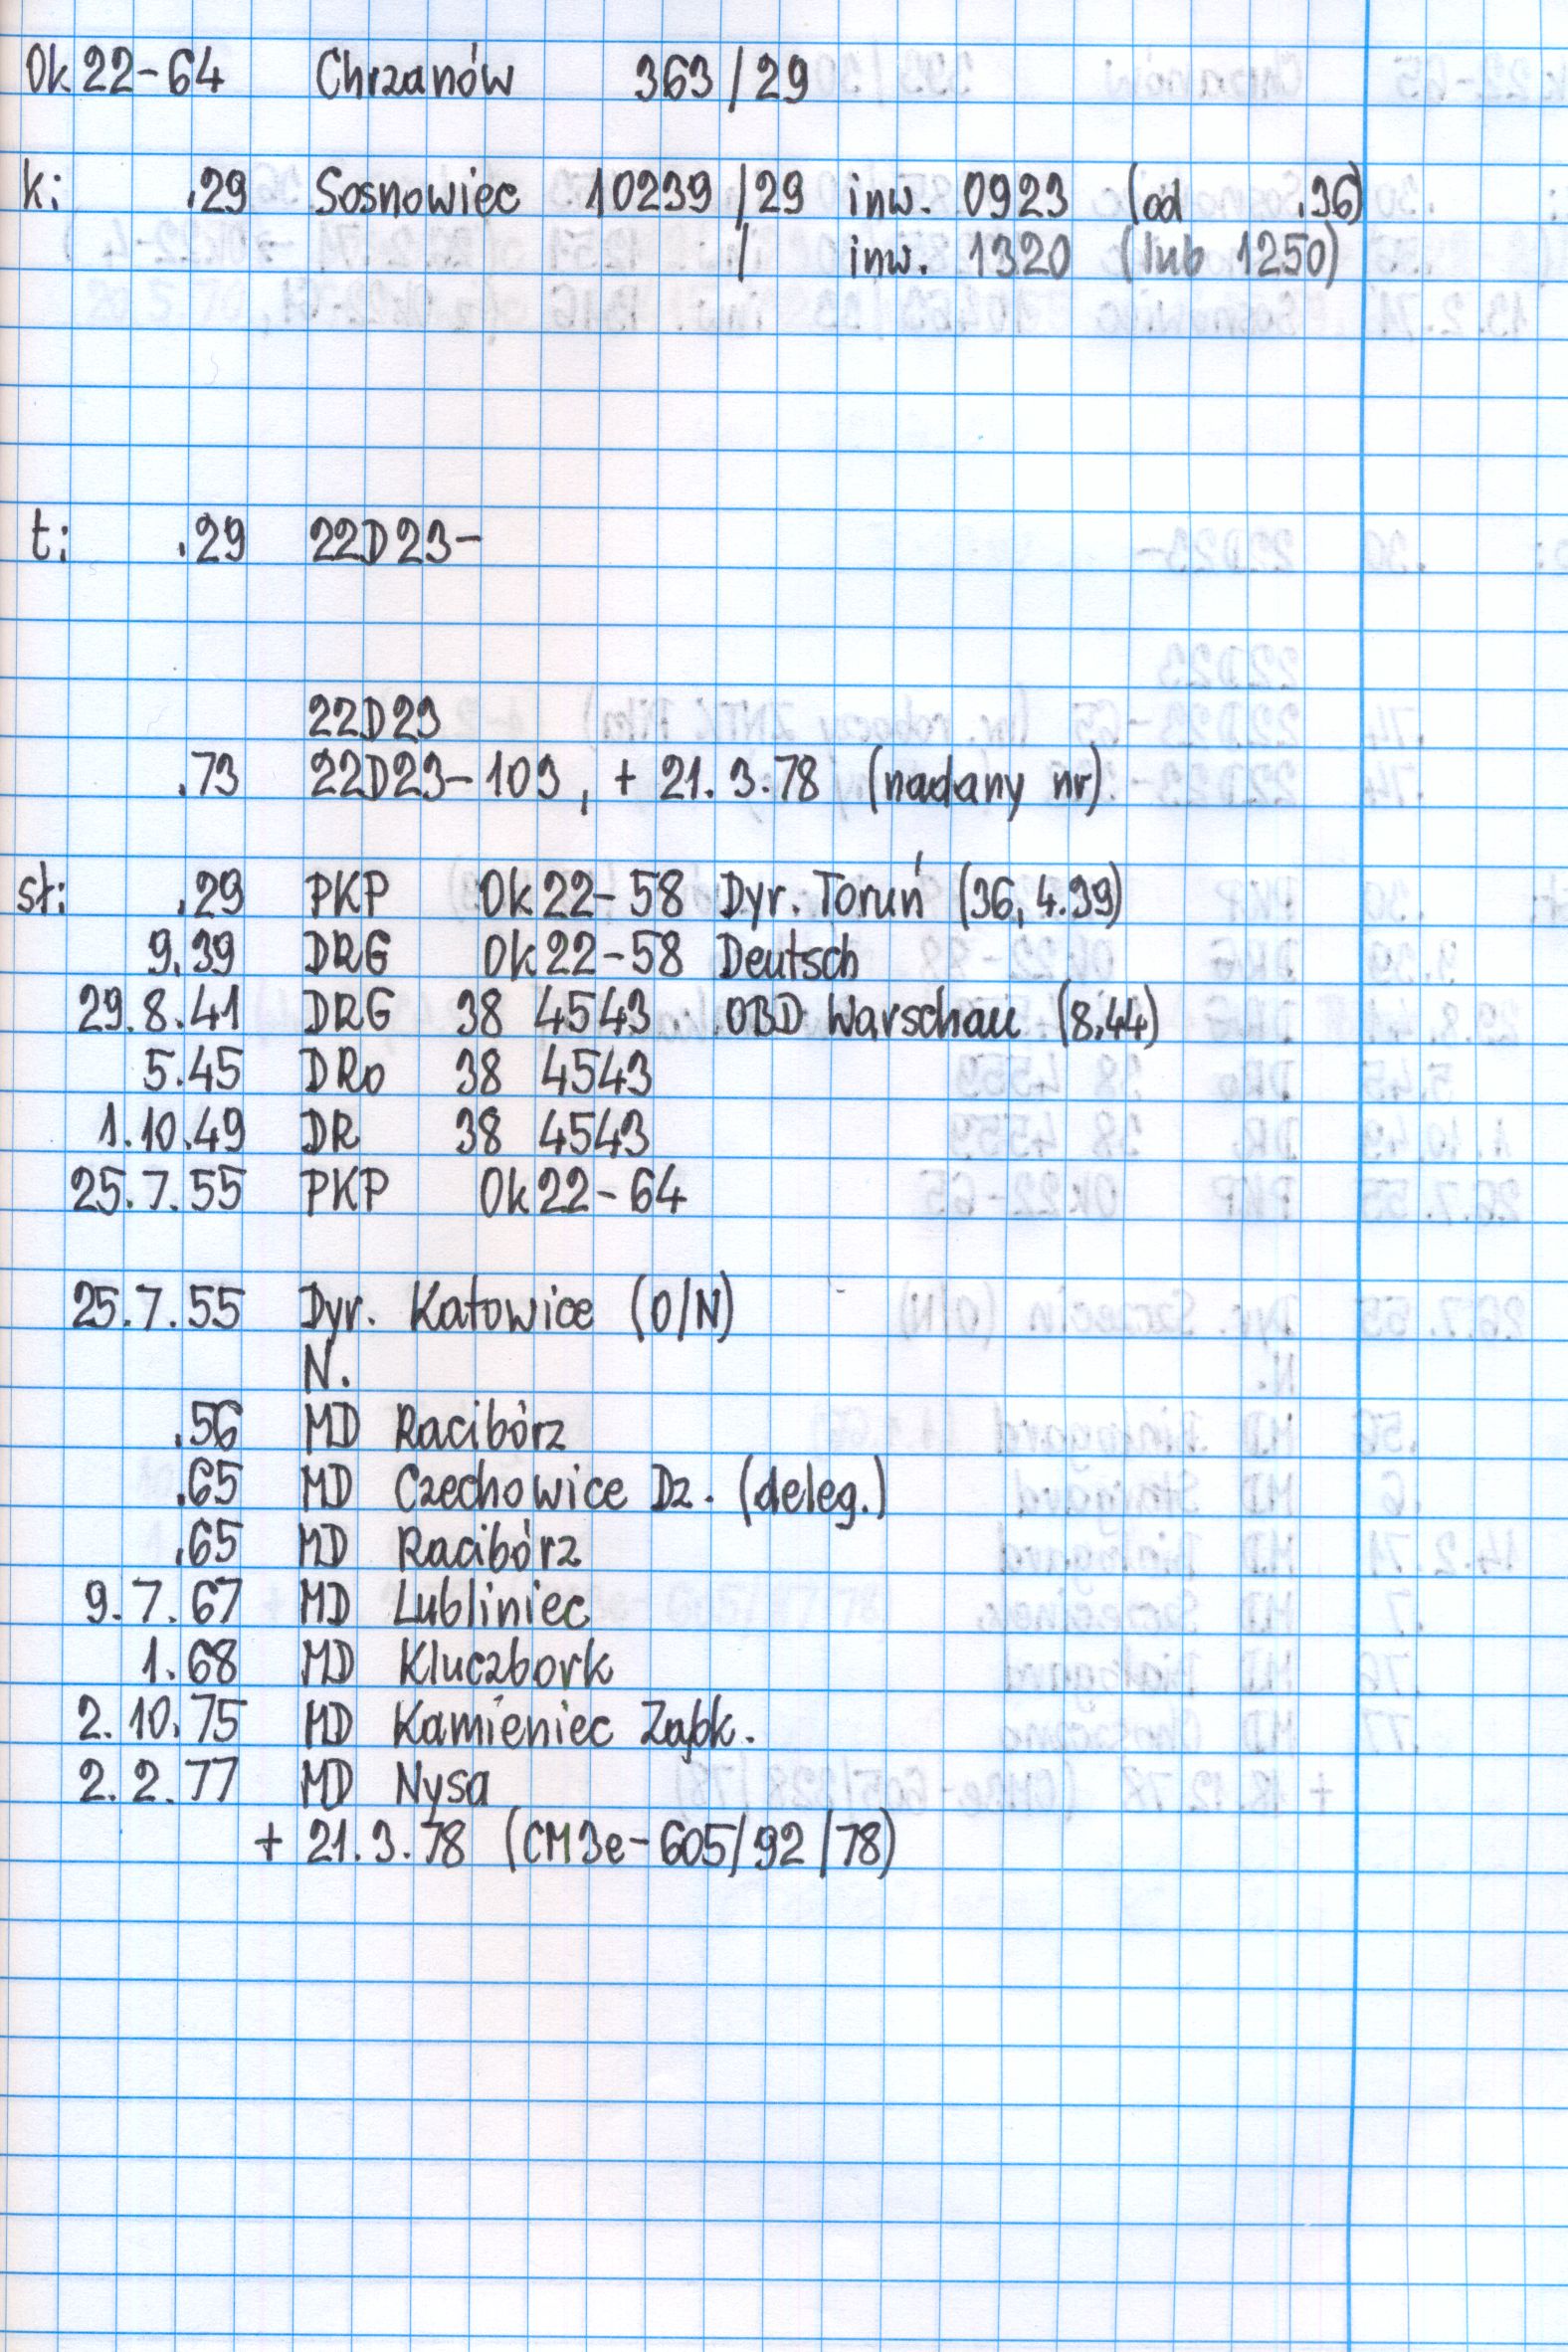 Ok22-64 Chrzanów 363/29
k: .29 Sosnowiec 10239/29 inw. 0923 (od .36)
/ inw. 1320 (lub 1250)
t: .29 22D23-
22D23
.73 22D23-103, + 21.3.78 (nadany nr)
sł: .29 PKP Ok22-58 Dyr. Toruń (36, 4.39)
9.39 DRG Ok22-58 Deutsch
29.8.41 DRG 38 4543 OBD Warschau (8.44)
5.45 DRo 38 4543
1.10.49 DR 38 4543
25.7.55 PKP Ok22-64
25.7.55 Dyr. Katowice (O/N)
N.
.56 MD Racibórz
.65 MD Czechowice Dz. (deleg.)
.65 MD Racibórz
9.7.67 MD Lubliniec
1.68 MD Kluczbork
2.10.75 MD Kamieniec Ząbk.
2.2.77 MD Nysa
+ 21.3.78 (CM3e-605/92/78)